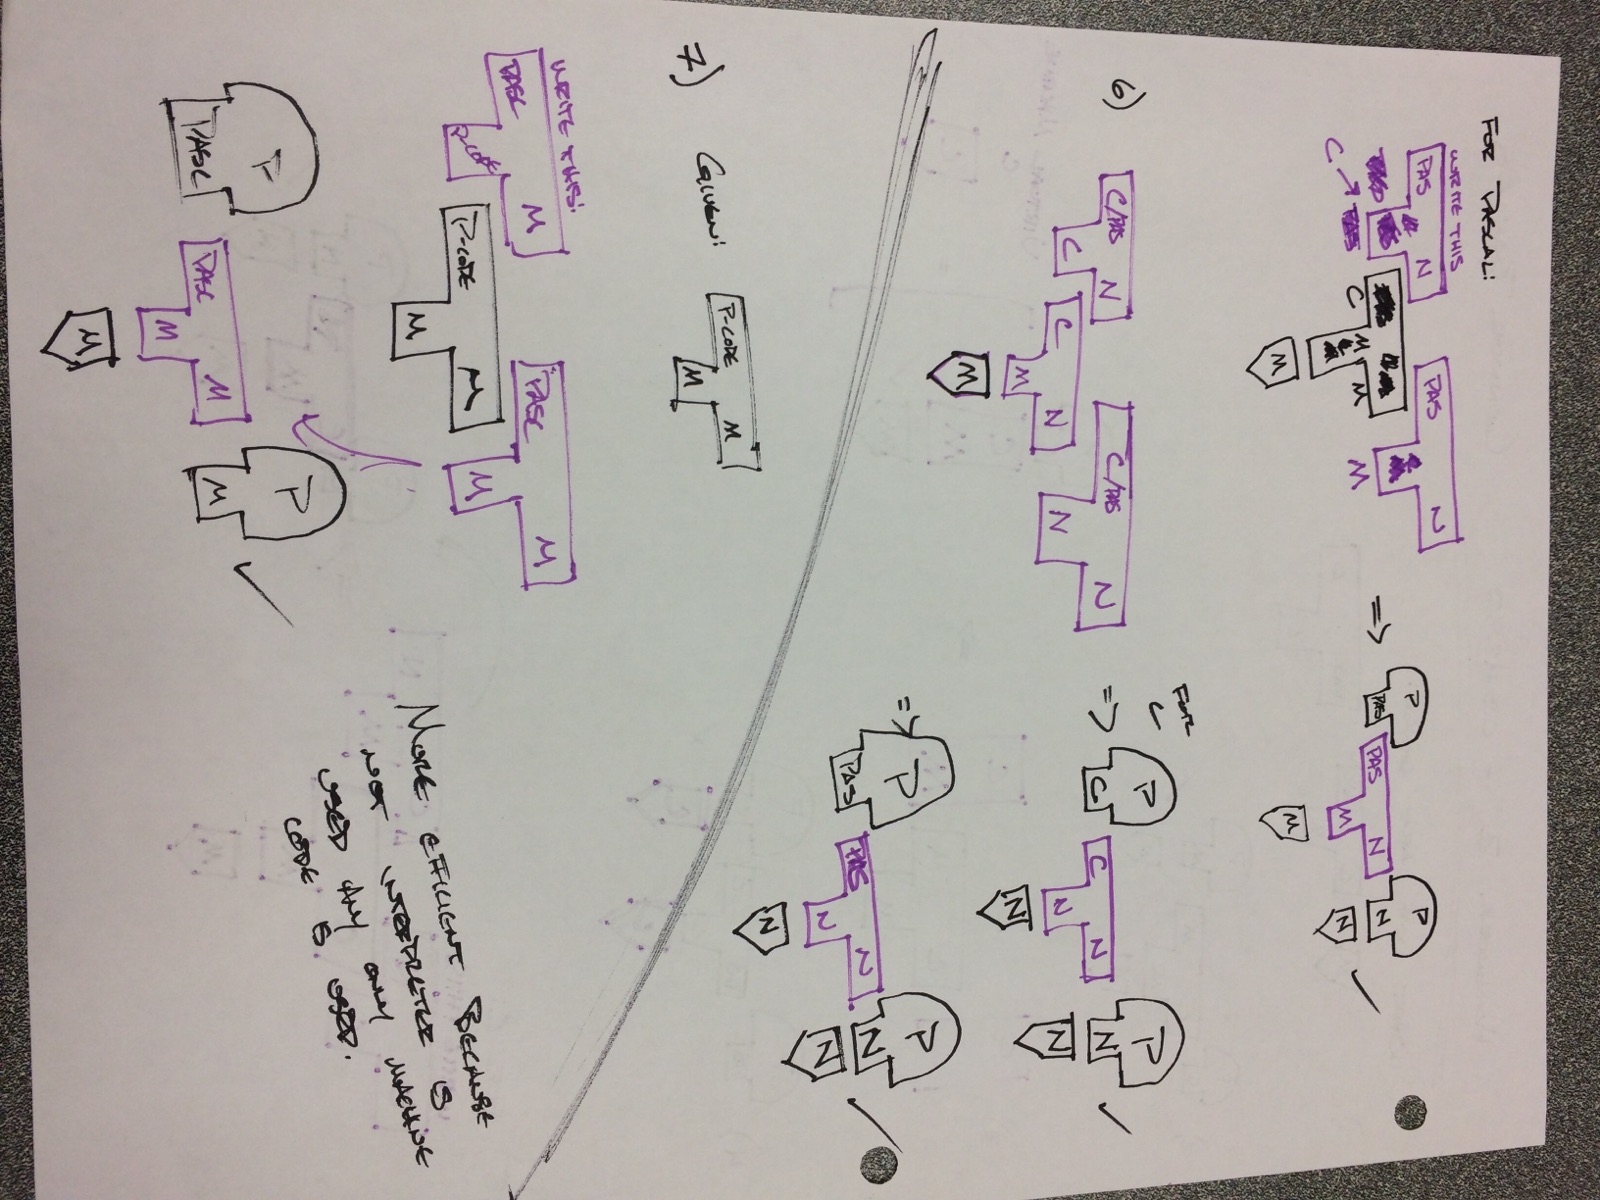 FOR PASCAL:
WRITE THIS
PAS N
C →
C M M
M
PAS N
M
=>
P
PAS
PAS N
M
M
P
N
N
6)
C/PAS N
C
C N
M
M
C/PAS N
N
FOR C
=>
P
C
C N
N
N
P
N
N
=>
P
PAS
PAS N
N
N
P
N
N
7) GIVEN:
P-CODE M
M
WRITE THIS:
PASC M
P-CODE
P-CODE M
M
PASC M
M
P
PASC
PASC M
M
M
P
M
MORE EFFICIENT BECAUSE
NOT INTERPRETER IS
USED ANY ONLY MACHINE
CODE IS USED.